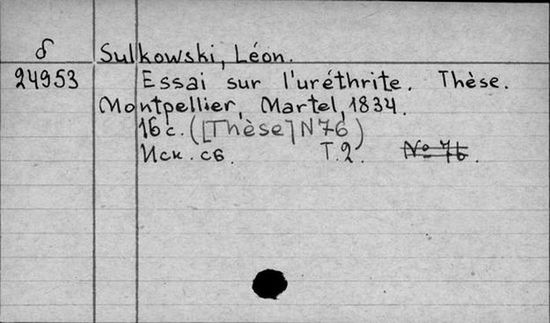 δ Sulkowski, Léon.
24953 Essai sur l'uréthrite. Thèse.
Montpellier, Martel, 1834.
16 с. ([Thèse] N 76)
Иск. св. Т. 2. № 76.